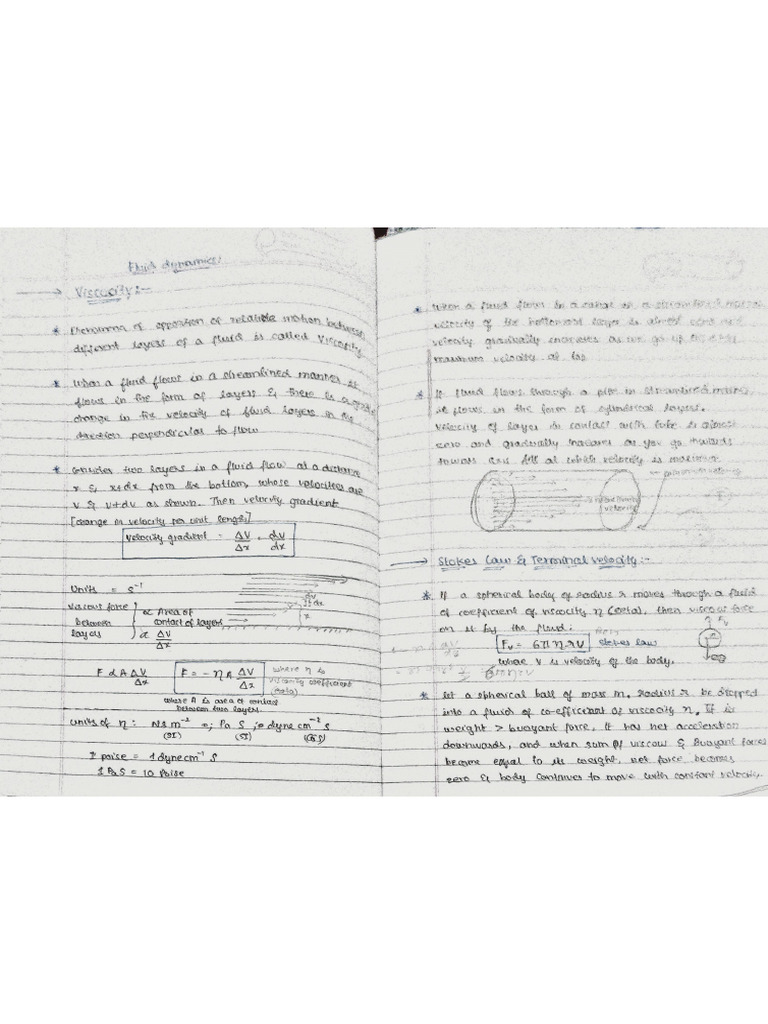 Fluid dynamics:
→ Viscosity:-
* Phenomena of opposition of relative motion between
different layers of a fluid is called Viscosity
* When a fluid flows in a streamlined manner it
flows in the form of layers & there is a
change in the velocity of fluid layers in the
direction perpendicular to flow
* Consider two layers in a fluid flow at a distance
x & x+dx from the bottom, whose velocities are
v & v+dv as shown. Then velocity gradient
[change in velocity per unit length]
velocity gradient = ΔV/Δx = dV/dx
Units = s⁻¹
viscous force between layers } ∝ Area of contact of layers
∝ ΔV/Δx
dv
dx
x
F ∝ A ΔV/Δx F = -η A ΔV/Δx where η is
viscosity coefficient
(eeta)
where A is area of contact
between two layers
Units of η: N s m⁻² ; Pa S ; dyne cm⁻² s
(SI) (SI) (CGS)
1 poise = 1 dyne cm⁻¹ S
1 Pa S = 10 Poise
* When a fluid flows in a canal in a streamlined manner
velocity of the bottommost layer is almost zero and
velocity gradually increases as we go up
maximum velocity at top
* If fluid flows through a pipe in streamlined manner,
it flows in the form of cylindrical layers.
velocity of layer in contact with tube is almost
zero and gradually increases as you go towards
towards axis at which velocity is maximum
velocity
→ Stokes Law & Terminal velocity:-
* If a spherical body of radius r moves through a fluid
of coefficient of viscosity η (eeta), then viscous force
on it by the fluid:
Fv
Fv = 6πηrV stokes law
where V is velocity of the body.
* Let a spherical ball of mass m, radius r be dropped
into a fluid of co-efficient of viscosity η. If is
weight > buoyant force, it has net acceleration
downwards, and when sum of viscous & Buoyant forces
become equal to its weight, net force becomes
zero & body continues to move with constant velocity